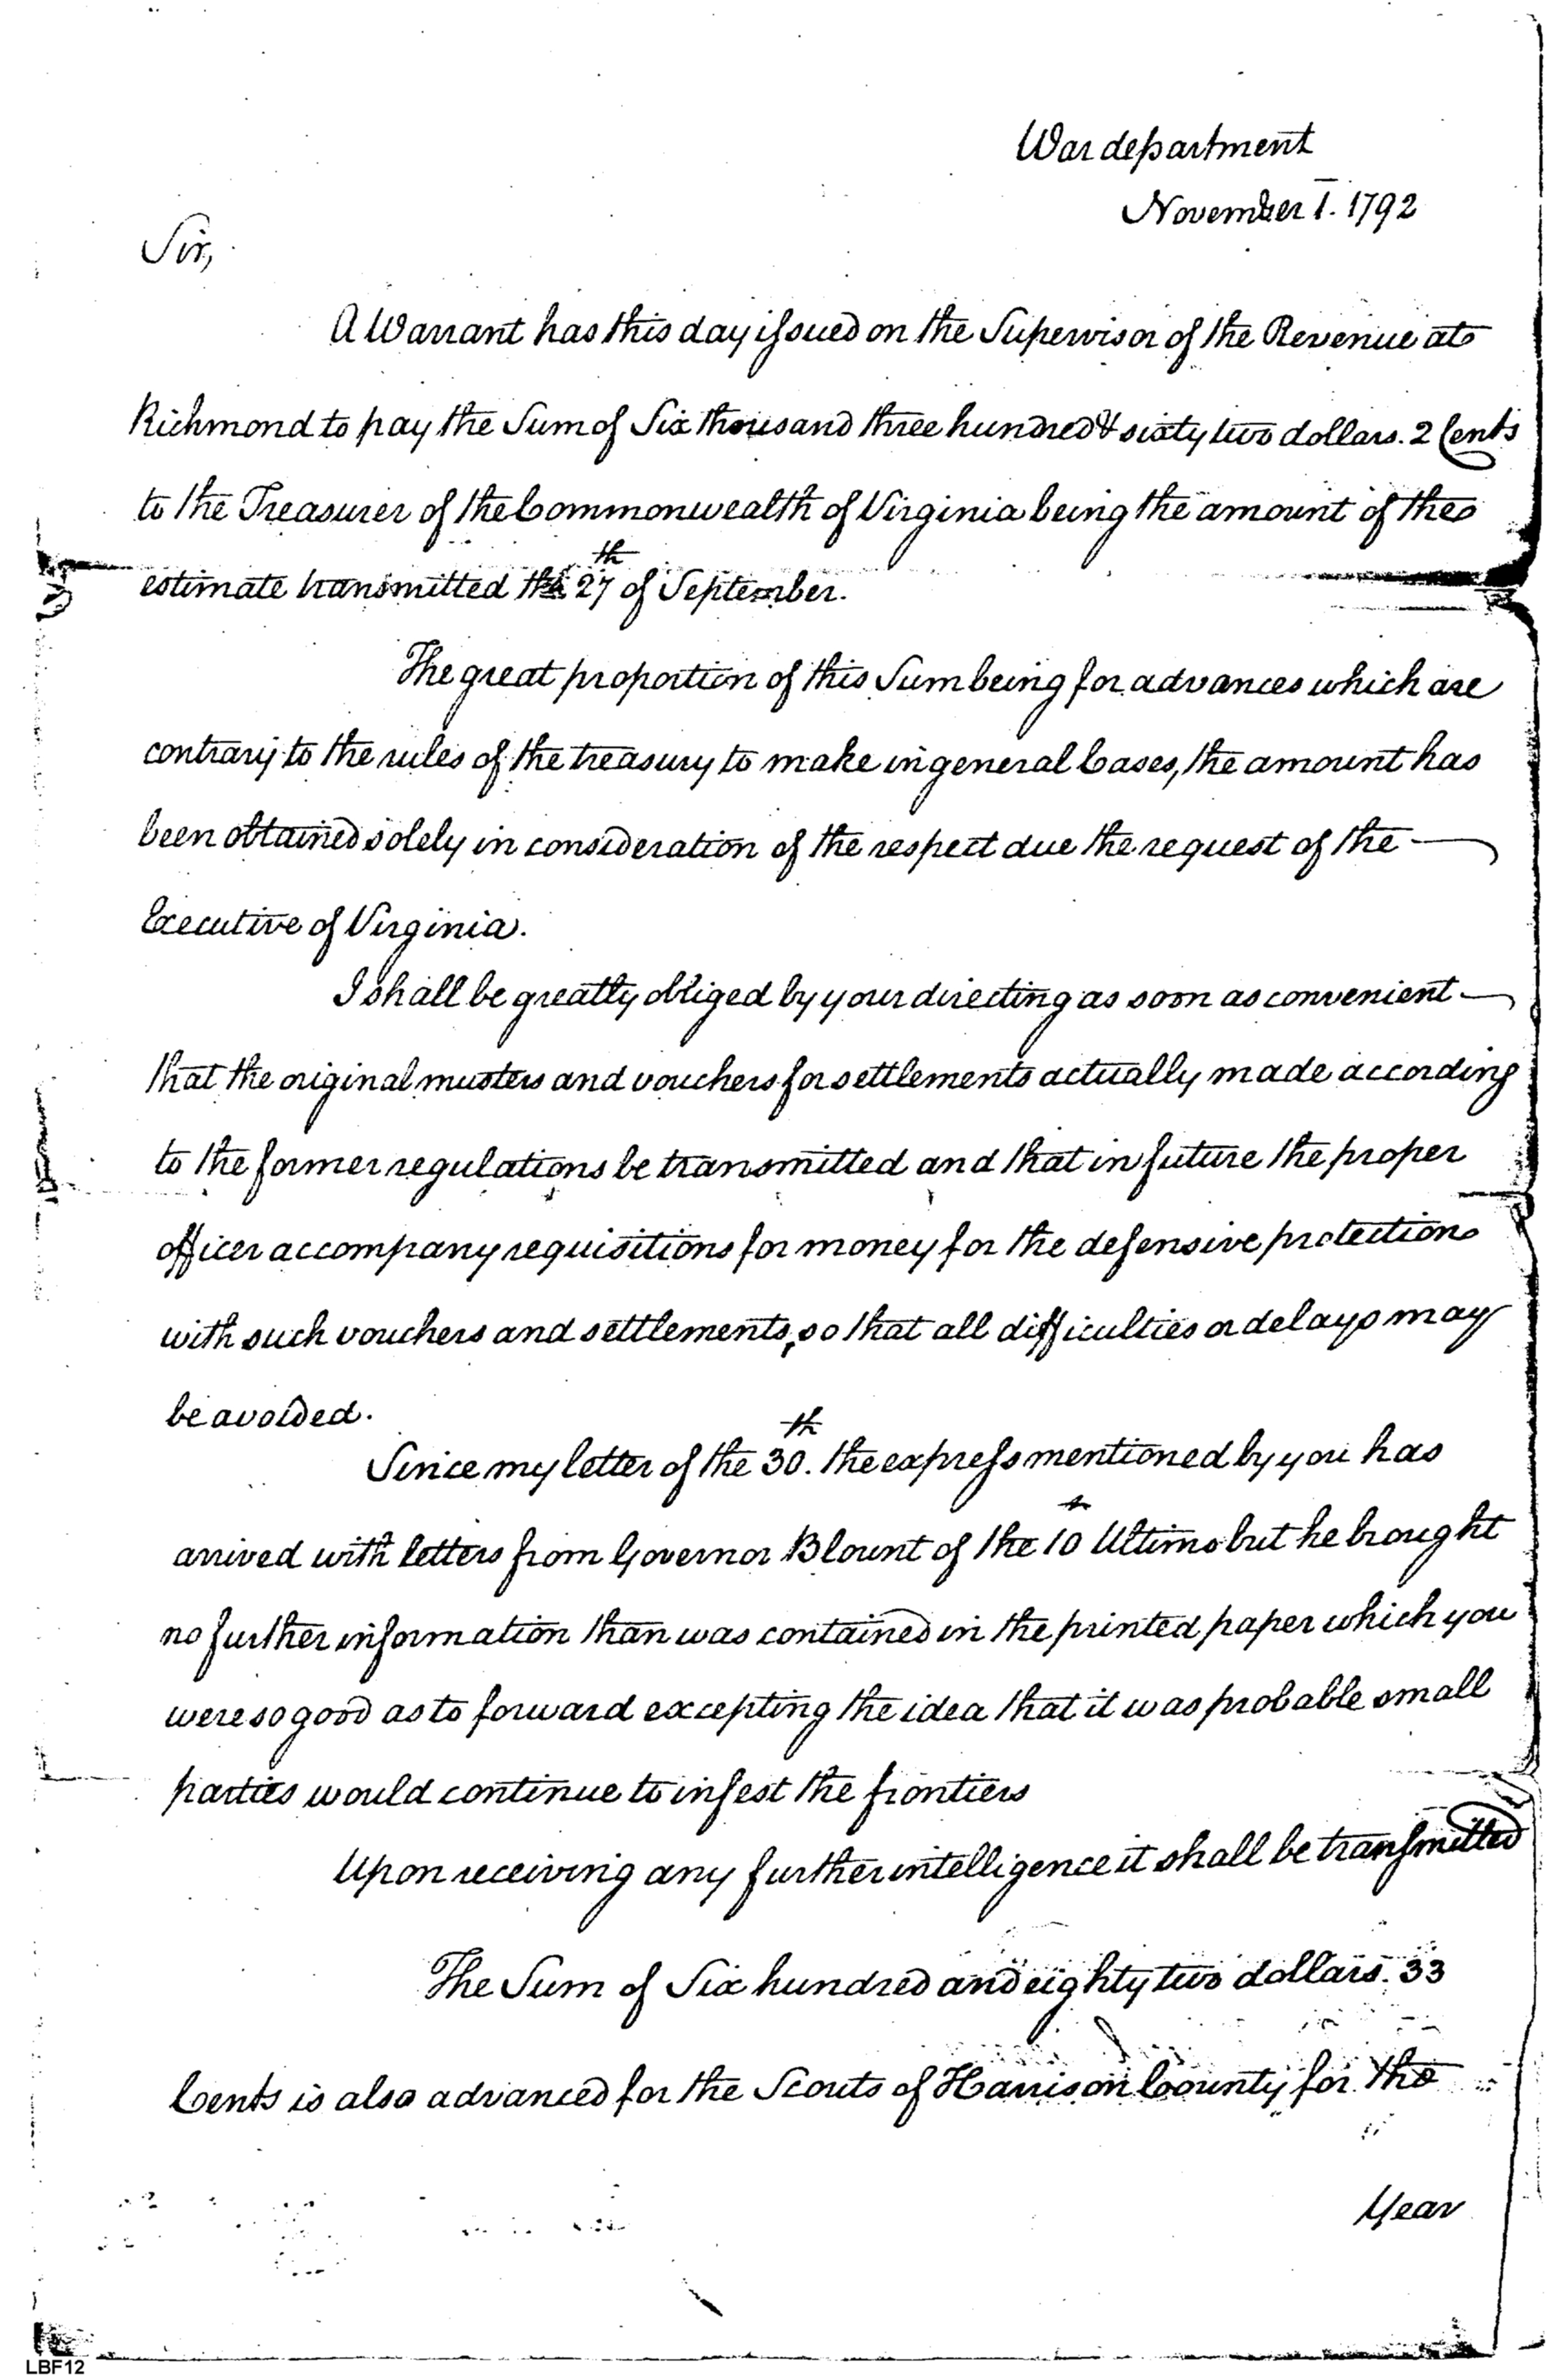 War department
November 1. 1792
Sir,
A Warrant has this day issued on the Supervisor of the Revenue at
Richmond to pay the Sum of Six thousand three hundred & sixty two dollars. 2 Cents
to the Treasurer of the Commonwealth of Virginia being the amount of the
estimate transmitted the 27th of September.
The great proportion of this Sum being for advances which are
contrary to the rules of the treasury to make in general Cases, the amount has
been obtained solely in consideration of the respect due the request of the
Executive of Virginia.
I shall be greatly obliged by your directing as soon as convenient
that the original musters and vouchers for settlements actually made according
to the former regulations be transmitted and that in future the proper
officer accompany requisitions for money for the defensive protection
with such vouchers and settlements, so that all difficulties or delays may
be avoided.
Since my letter of the 30th. the express mentioned by you has
arrived with letters from Governor Blount of the 10th Ultimo but he brought
no further information than was contained in the printed paper which you
were so good as to forward excepting the idea that it was probable small
parties would continue to infest the frontiers
Upon receiving any further intelligence it shall be transmitted
The Sum of Six hundred and eighty two dollars. 33
Cents is also advanced for the Scouts of Harrison County for the
Year
LBF12